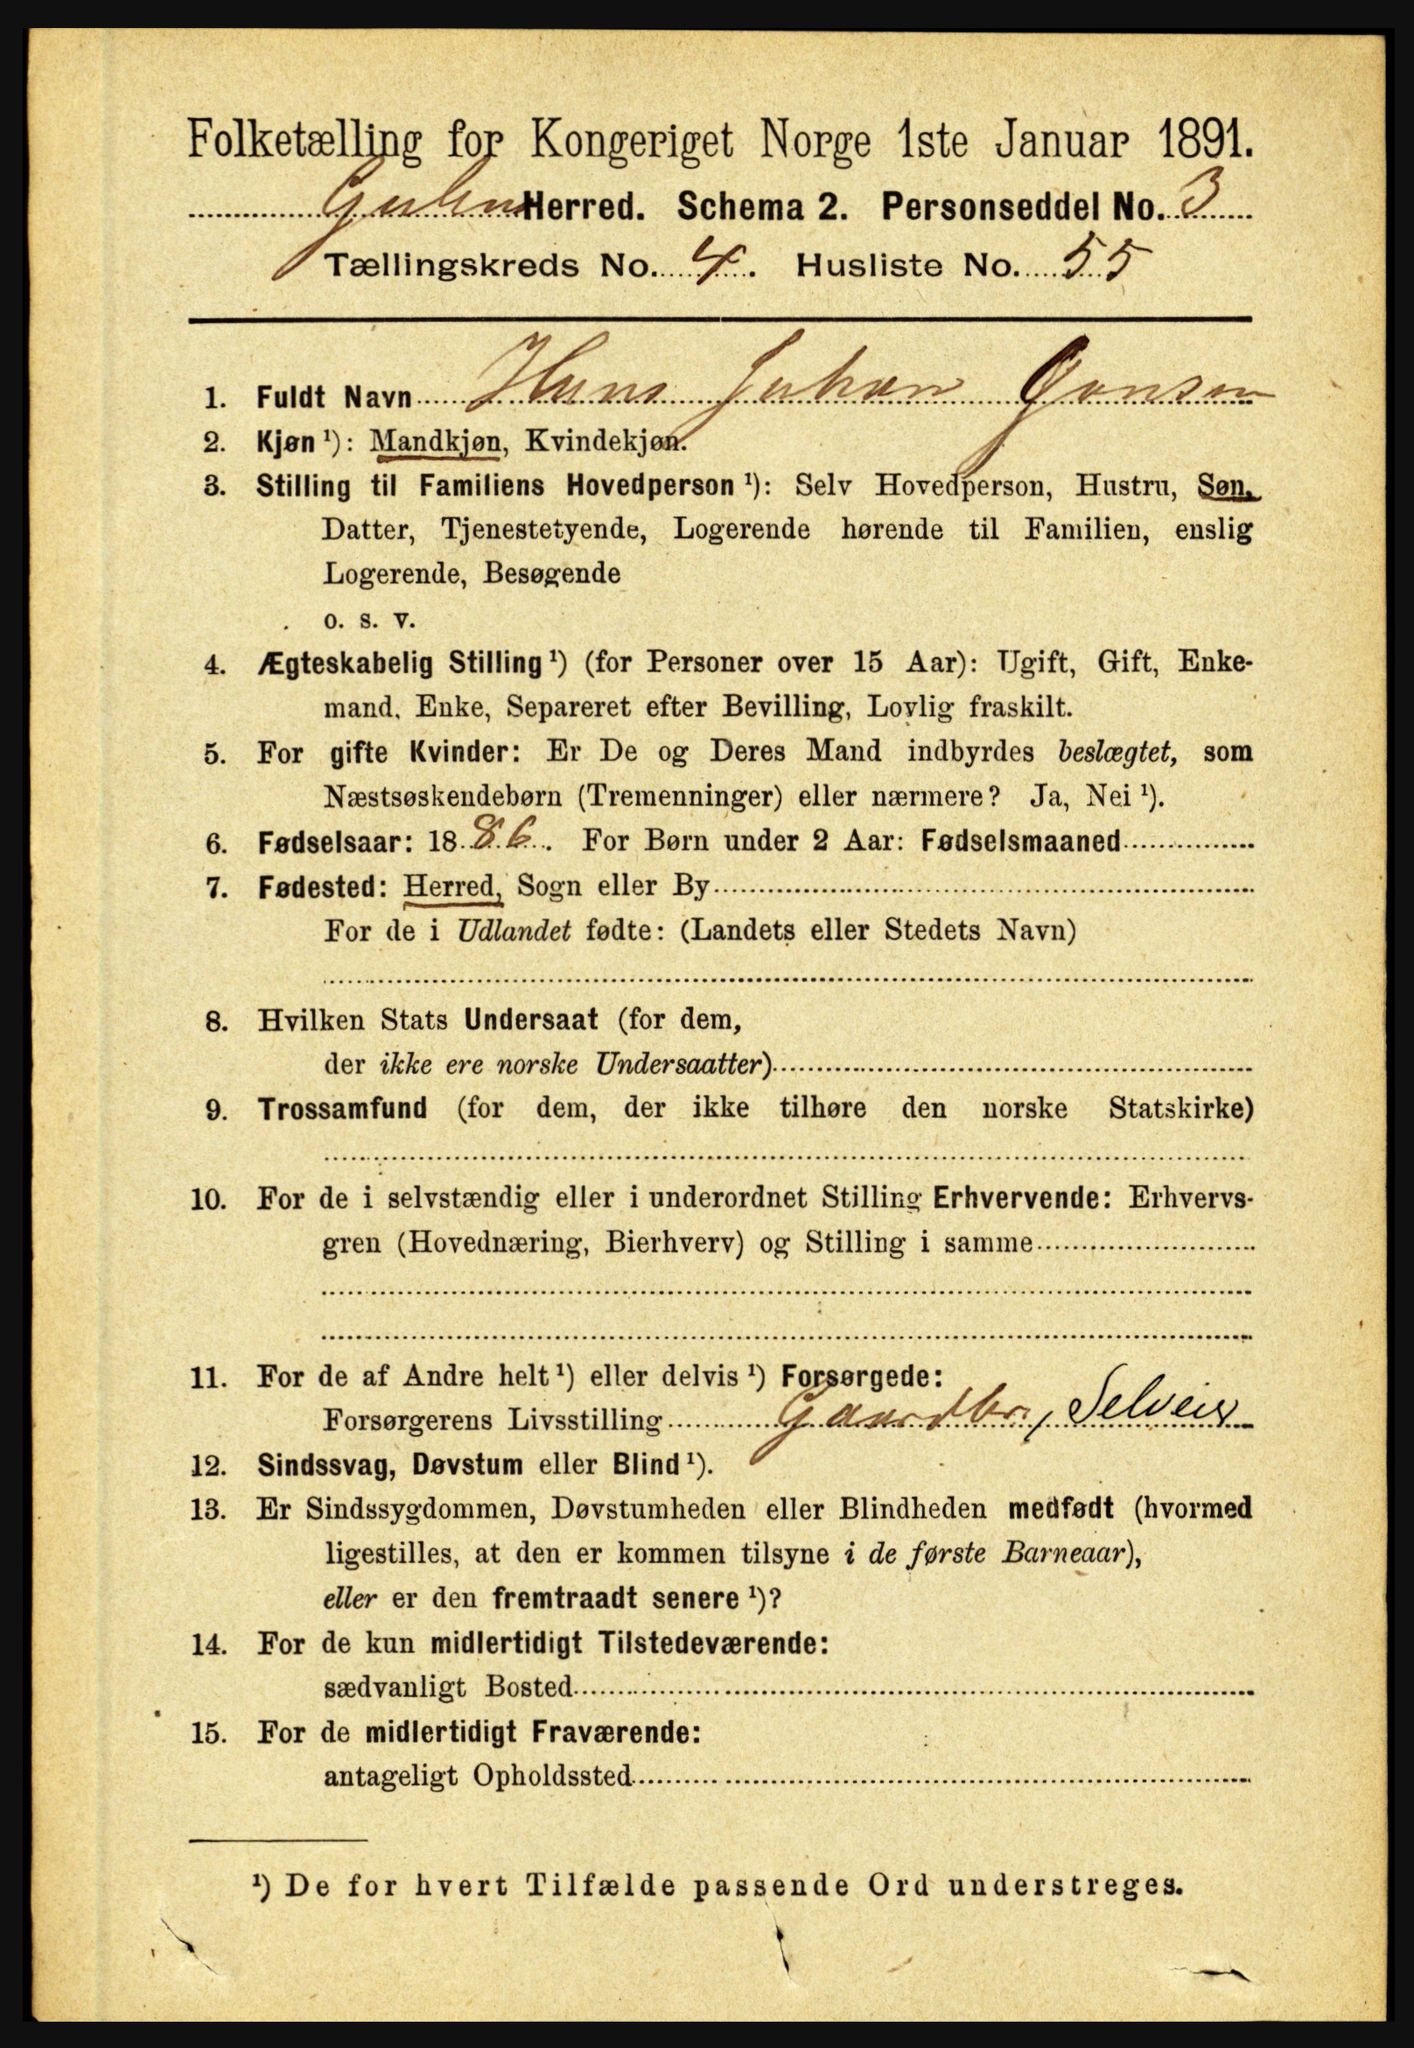 Folketælling for Kongeriget Norge 1ste Januar 1891.
Gulens Herred. Schema 2. Personseddel No. 3
Tællingskreds No. 4. Husliste No. 55
1. Fuldt Navn Hans Johan Jonsen
2. Kjøn ¹): Mandkjøn, Kvindekjøn.
3. Stilling til Familiens Hovedperson ¹): Selv Hovedperson, Hustru, Søn,
Datter, Tjenestetyende, Logerende hørende til Familien, enslig
Logerende, Besøgende
o. s. v.
4. Ægteskabelig Stilling ¹) (for Personer over 15 Aar): Ugift, Gift, Enke-
mand, Enke, Separeret efter Bevilling, Lovlig fraskilt.
5. For gifte Kvinder: Er De og Deres Mand indbyrdes beslægtet, som
Næstsøskendebørn (Tremenninger) eller nærmere? Ja, Nei ¹).
6. Fødselsaar: 1886. For Børn under 2 Aar: Fødselsmaaned
7. Fødested: Herred, Sogn eller By
For de i Udlandet fødte: (Landets eller Stedets Navn)
8. Hvilken Stats Undersaat (for dem,
der ikke ere norske Undersaatter)
9. Trossamfund (for dem, der ikke tilhøre den norske Statskirke)
10. For de i selvstændig eller i underordnet Stilling Erhvervende: Erhvervs-
gren (Hovednæring, Bierhverv) og Stilling i samme
11. For de af Andre helt ¹) eller delvis ¹) Forsørgede:
Forsørgerens Livsstilling Gaardbr, Selveier
12. Sindssvag, Døvstum eller Blind ¹).
13. Er Sindssygdommen, Døvstumheden eller Blindheden medfødt (hvormed
ligestilles, at den er kommen tilsyne i de første Barneaar),
eller er den fremtraadt senere ¹)?
14. For de kun midlertidigt Tilstedeværende:
sædvanligt Bosted
15. For de midlertidigt Fraværende:
antageligt Opholdssted
¹) De for hvert Tilfælde passende Ord understreges.